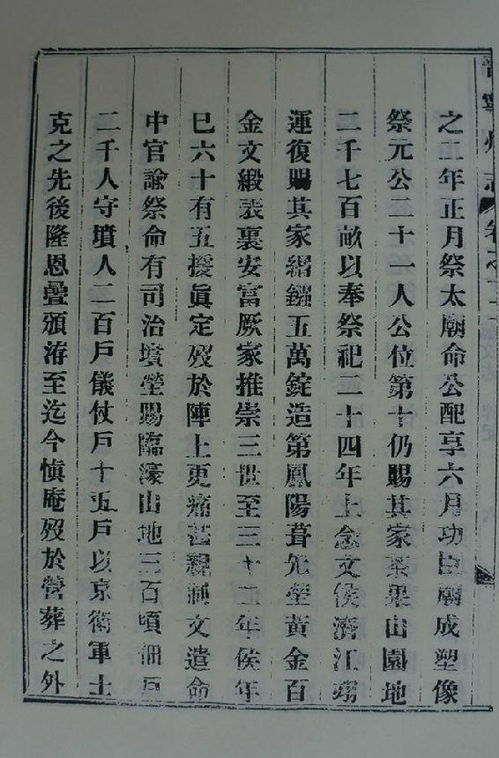 寧州志 卷之
之二年正月祭太廟命公配享六月功臣廟成塑像
祭元公二十一人公位第十仍賜其家菜果山園地
二千七百畝以奉祭祀二十四年上念文侯濟江翊
運復賜其家楮鏹五萬錠造第鳳陽葺先塋黃金百
金文緞表裏安富厥家推崇三世至三十二年侯年
巳六十有五援眞定歿於陣上更痛甚親文遣命
中官諭祭命有司治墳塋賜臨濠山地三百頃佃戶
二千人守墳人二百戶儀仗戶十五戶以京衛軍士
克之先後隆恩疊頒洊至迄今愼庵歿於營葬之外